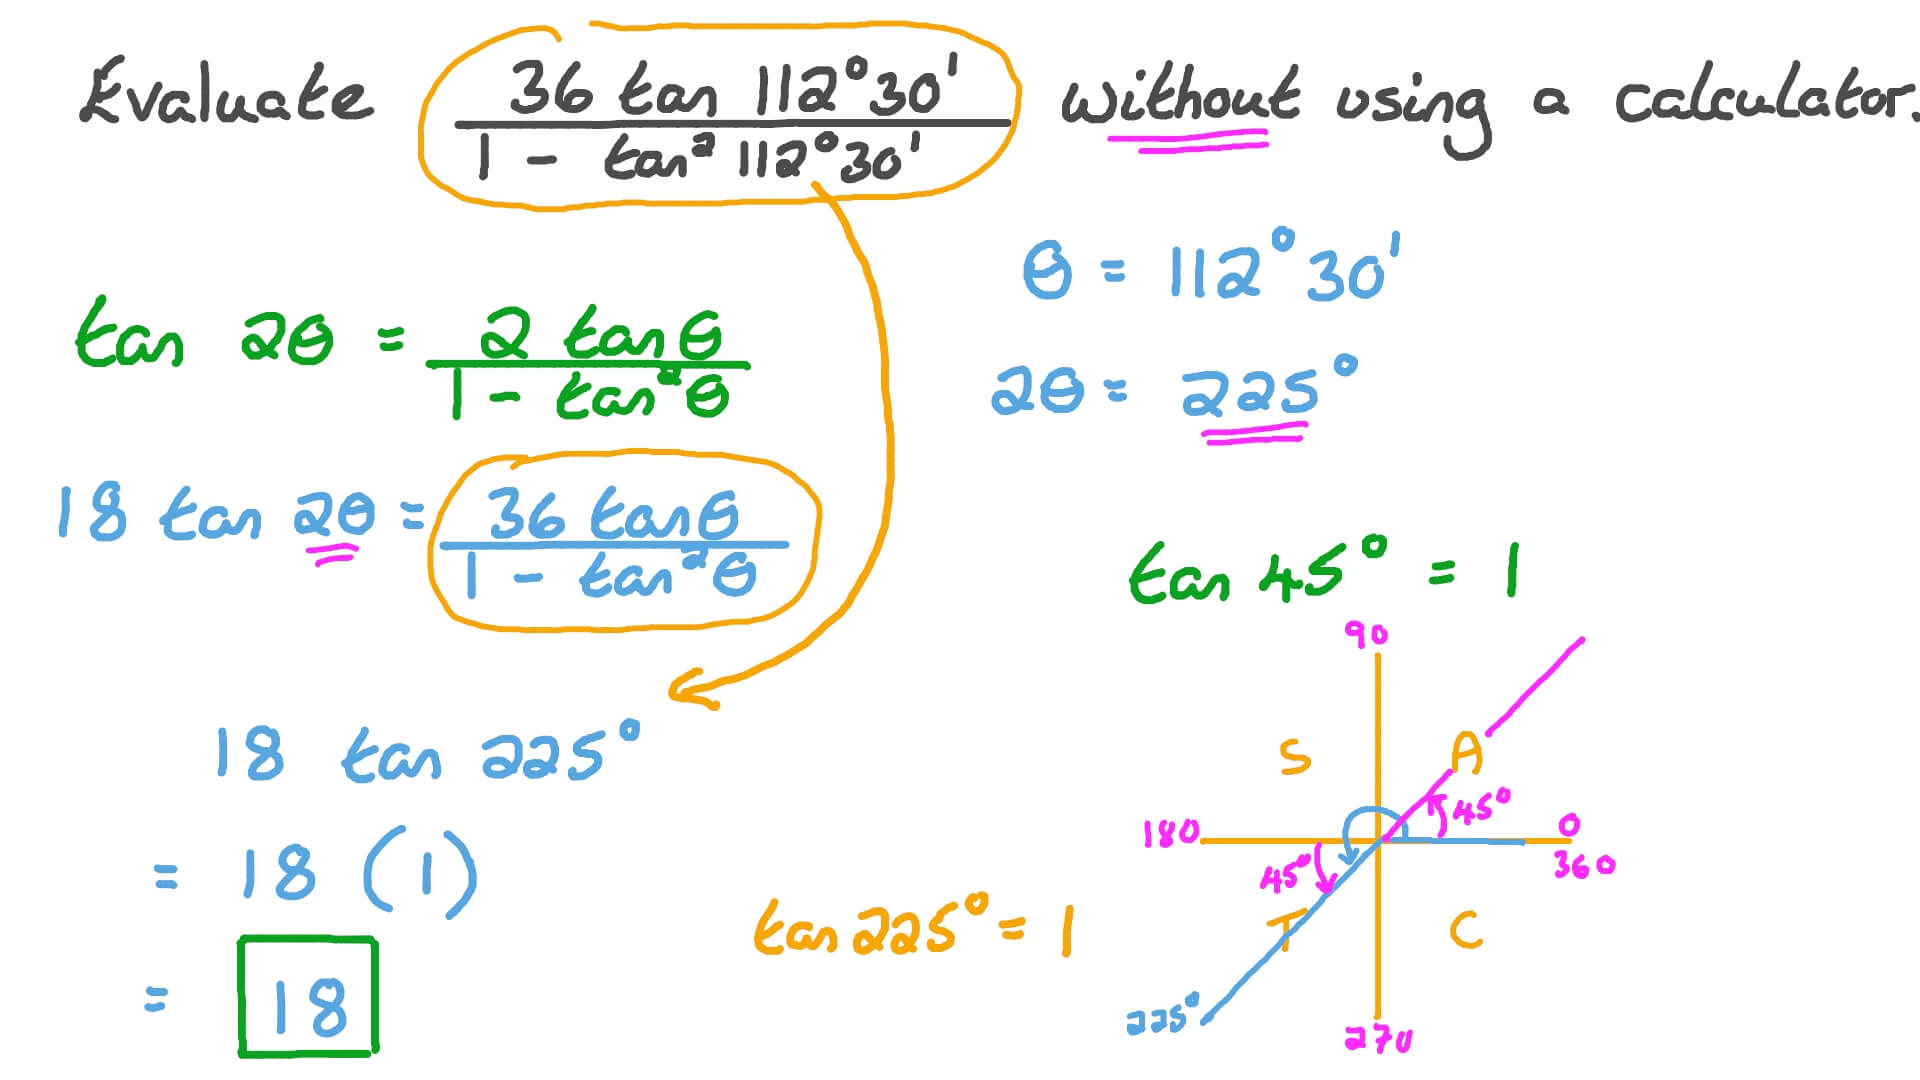 Evaluate 36 tan 112°30' / 1 - tan² 112°30' without using a calculator.
θ = 112°30'
tan 2θ = 2 tanθ / 1 - tan²θ
2θ = 225°
18 tan 2θ = 36 tanθ / 1 - tan²θ
tan 45° = 1
90
S A
45°
180 0
360
45°
T C
225°
270
18 tan 225°
= 18 (1)
tan 225° = 1
= 18